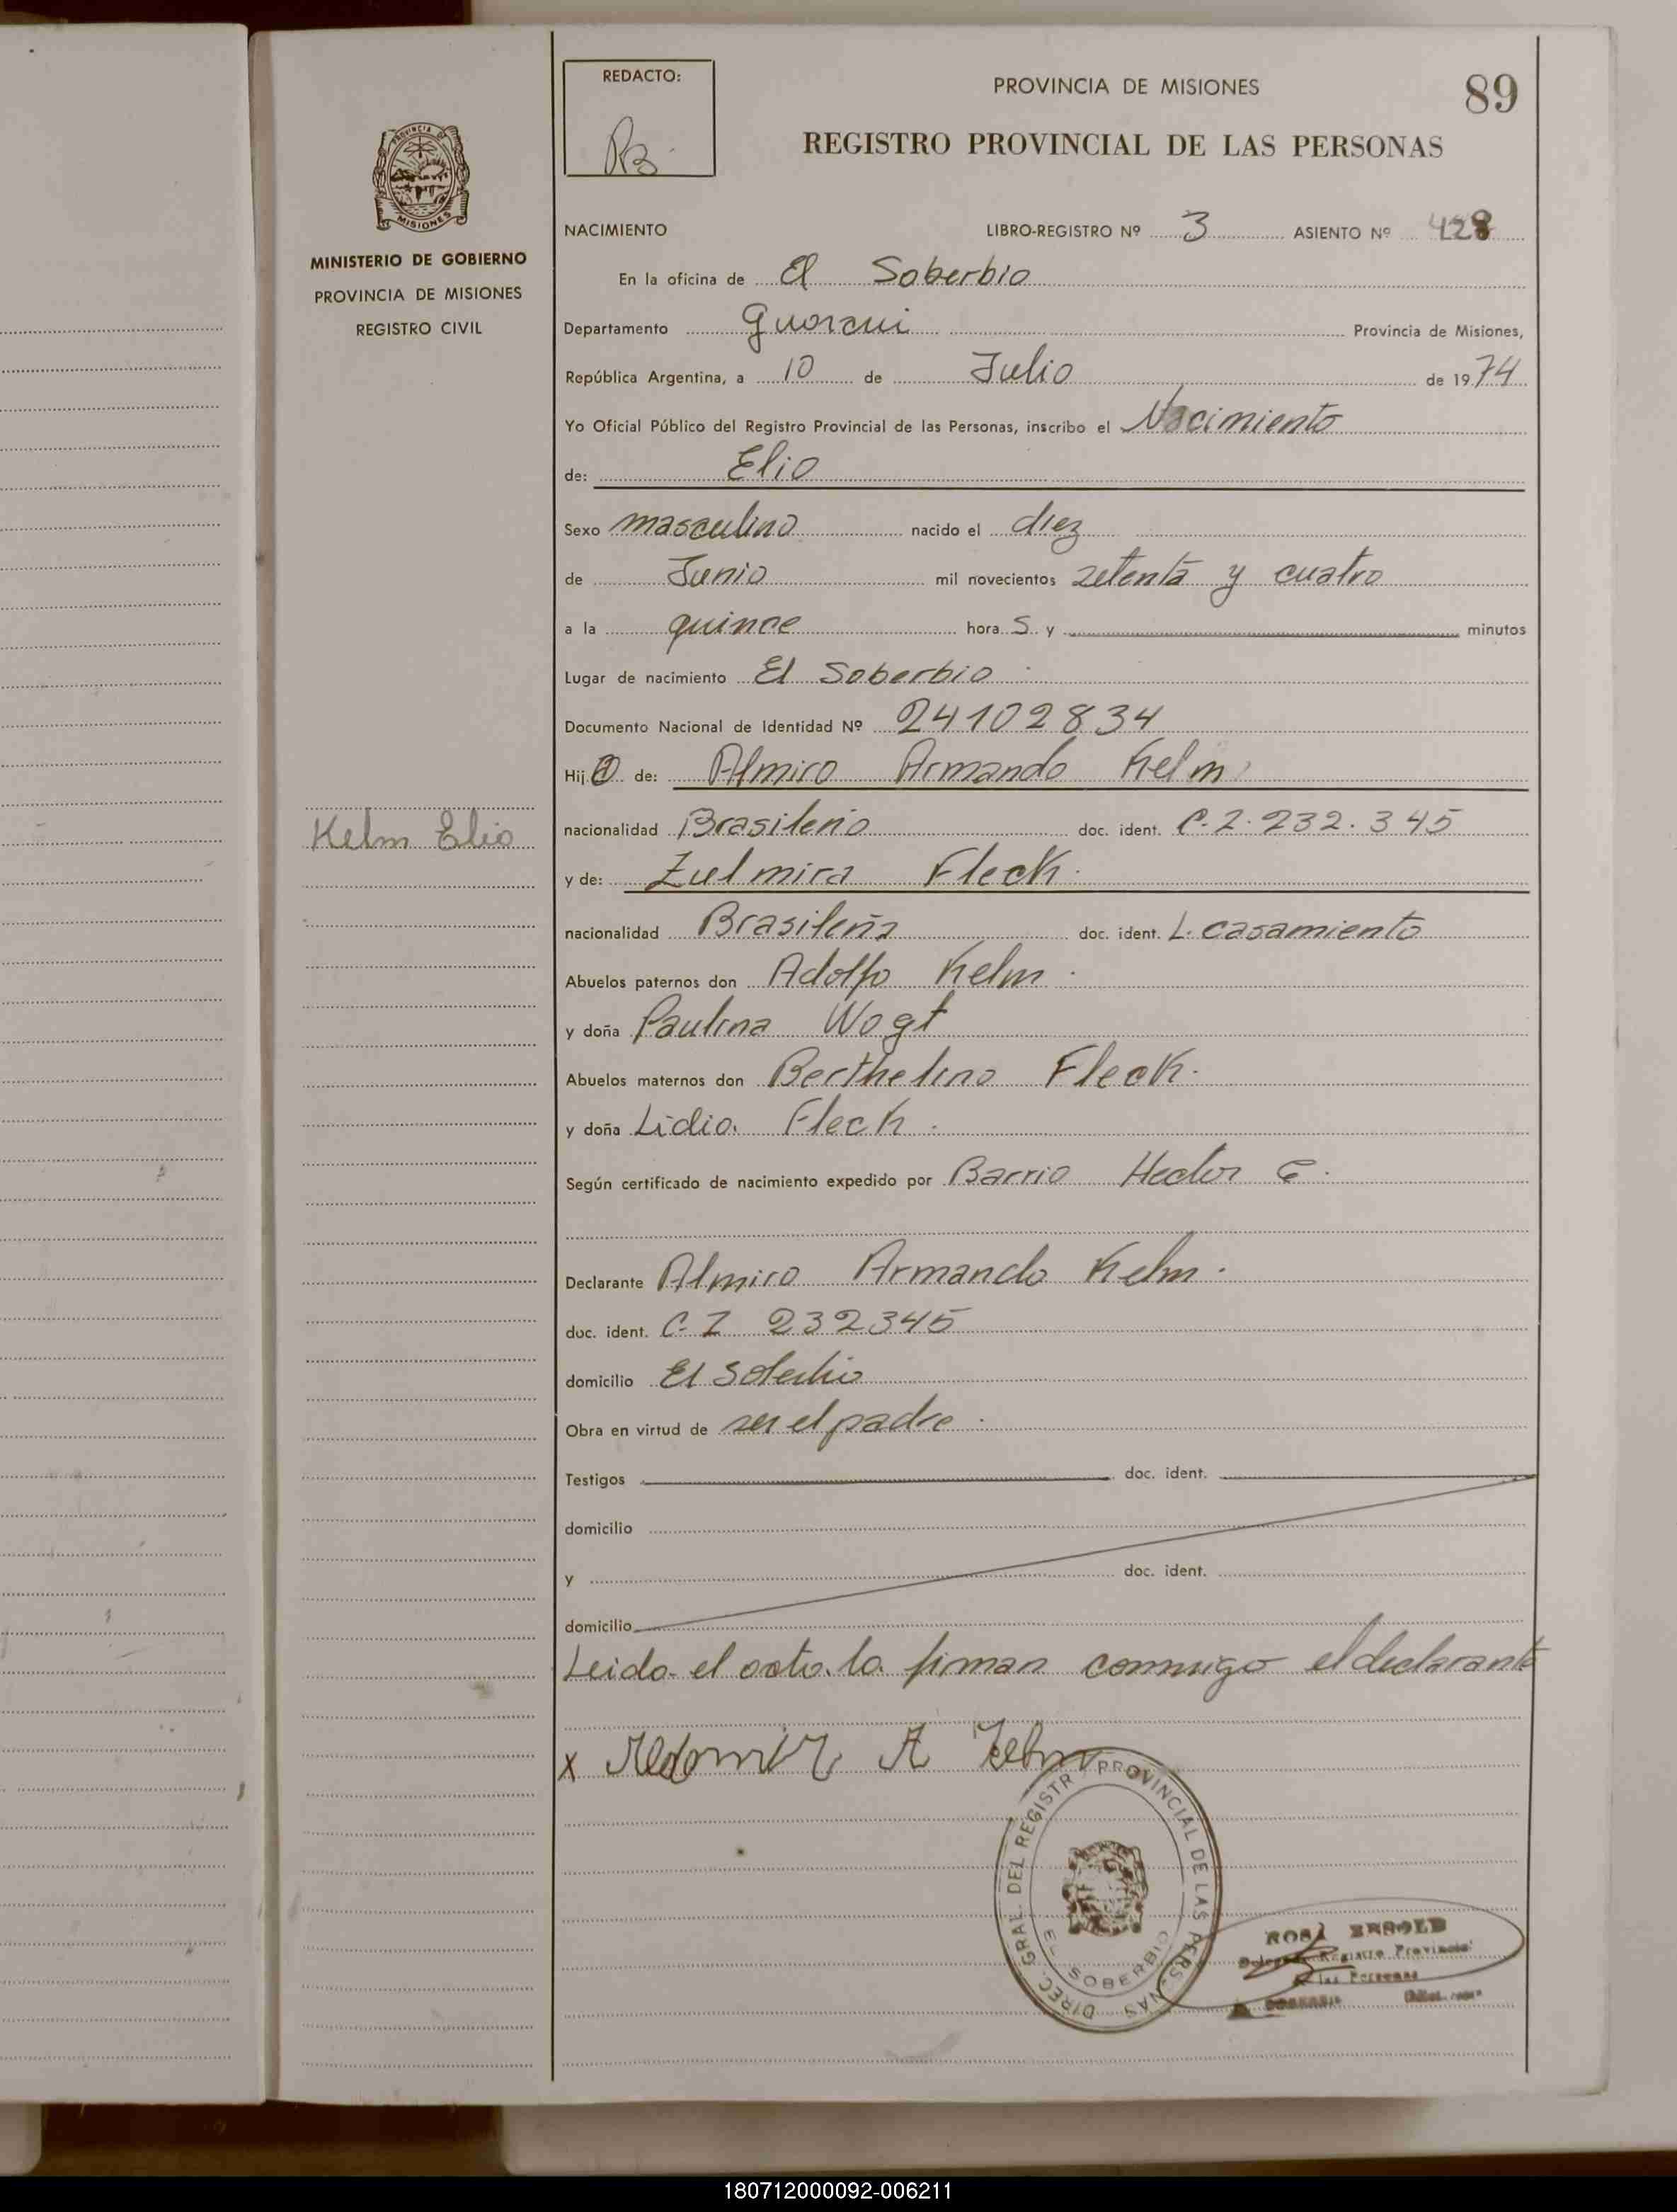 REDACTO:
PROVINCIA DE MISIONES
89
REGISTRO PROVINCIAL DE LAS PERSONAS
PROVINCIA DE
MISIONES
MINISTERIO DE GOBIERNO
PROVINCIA DE MISIONES
REGISTRO CIVIL
NACIMIENTO LIBRO-REGISTRO Nº 3 ASIENTO Nº 428
En la oficina de El Soberbio
Departamento Guarani Provincia de Misiones,
República Argentina, a 10 de Julio de 1974
Yo Oficial Público del Registro Provincial de las Personas, inscribo el Nacimiento
de: Elio
Sexo masculino nacido el diez
de Junio mil novecientos setenta y cuatro
a la quince hora S y minutos
Lugar de nacimiento El Soberbio
Documento Nacional de Identidad Nº 24102834
Hijo de: Almiro Armando Kelm
Kelm Elio
nacionalidad Brasileño doc. ident. C.I. 232.345
y de: Zulmira Fleck
nacionalidad Brasileña doc. ident. L. casamiento
Abuelos paternos don Adolfo Kelm
y doña Paulina Wogt
Abuelos maternos don Berthelino Fleck.
y doña Lidia Fleck.
Según certificado de nacimiento expedido por Barrio Hector E.
Declarante Almiro Armando Kelm.
doc. ident. C. I 232345
domicilio El Soberbio
Obra en virtud de ser el padre.
Testigos doc. ident.
domicilio
y doc. ident.
domicilio
Leida el acta la firman conmigo el declarante
x A Kelm
DIREC. GRAL. DEL REGISTR PROVINCIAL DE LAS PERSONAS
EL SOBERBIO
ROSA
Registro Provincial
las Personas
180712000092-006211